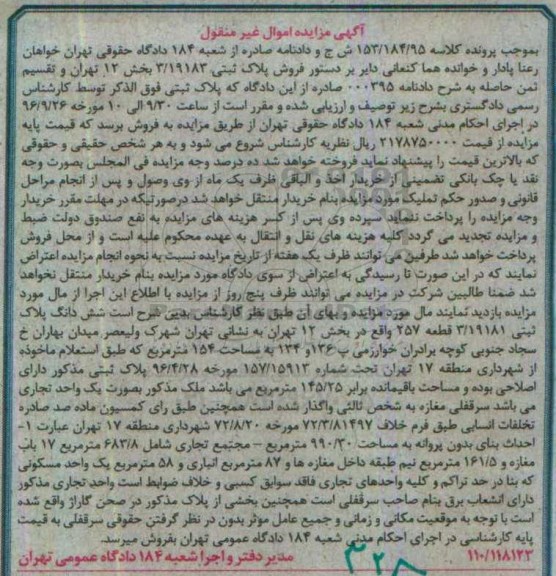 آگهی مزایده اموال غیر منقول
بموجب پرونده کلاسه ۱۵۳/۱۸۴/۹۵ ش ج و دادنامه صادره از شعبه ۱۸۴ دادگاه حقوقی تهران خواهان
رعنا پادار و خوانده هما کنعانی دایر بر دستور فروش پلاک ثبتی ۳/۱۹۱۸۳ بخش ۱۲ تهران و تقسیم
ثمن حاصله به شرح دادنامه ۰۰۰۳۹۵ صادره از این دادگاه که پلاک ثبتی فوق الذکر توسط کارشناس
رسمی دادگستری بشرح زیر توصیف و ارزیابی شده و مقرر است از ساعت ۹/۳۰ الی ۱۰ مورخه ۹۶/۹/۲۶
در اجرای احکام مدنی شعبه ۱۸۴ دادگاه حقوقی تهران از طریق مزایده به فروش برسد که قیمت پایه
مزایده از قیمت ۲۱۷۸۷۵۰۰۰۰ ریال نظریه کارشناس شروع می شود و به هر شخص حقیقی و حقوقی
که بالاترین قیمت را پیشنهاد نماید فروخته خواهد شد ده درصد وجه مزایده فی المجلس بصورت وجه
نقد یا چک بانکی تضمینی از خریدار اخذ و الباقی ظرف یک ماه از وی وصول و پس از انجام مراحل
قانونی و صدور حکم تملیک مورد مزایده بنام خریدار منتقل خواهد شد درصورتیکه در مهلت مقرر خریدار
وجه مزایده را پرداخت ننماید سپرده وی پس از کسر هزینه های مزایده به نفع صندوق دولت ضبط
و مزایده تجدید می گردد کلیه هزینه های نقل و انتقال به عهده محکوم علیه است و از محل فروش
پرداخت خواهد شد طرفین می توانند ظرف یک هفته از تاریخ مزایده نسبت به نحوه انجام مزایده اعتراض
نمایند که در این صورت تا رسیدگی به اعتراض از سوی دادگاه مورد مزایده بنام خریدار منتقل نخواهد
شد ضمنا طالبین شرکت در مزایده می توانند ظرف پنج روز از مزایده با اطلاع این اجرا از مال مورد
مزایده بازدید نمایند مال مورد مزایده و بهای آن طبق نظر کارشناس بدین شرح است شش دانگ پلاک
ثبتی ۳/۱۹۱۸۱ قطعه ۲۵۷ واقع در بخش ۱۲ تهران به نشانی تهران شهرک ولیعصر میدان بهاران خ
سجاد جنوبی کوچه برادران خوارزمی پ ۱۳۶و ۱۳۴ به مساحت ۱۵۴ مترمربع که طبق استعلام ماخوذه
از شهرداری منطقه ۱۷ تهران تحت شماره ۱۵۷/۱۵۹۱۳ مورخه ۹۶/۴/۲۸ پلاک ثبتی مذکور دارای
اصلاحی بوده و مساحت باقیمانده برابر ۱۴۵/۲۵ مترمربع می باشد ملک مذکور بصورت یک واحد تجاری
می باشد سرقفلی مغازه به شخص ثالثی واگذار شده است همچنین طبق رای کمسیون ماده صد صادره
تخلفات انسابی طبق فرم خلاف ۷۲/۳/۸۱۴۹۷ مورخه ۷۲/۸/۲۰ شهرداری منطقه ۱۷ تهران عبارت ۱-
احداث بنای بدون پروانه به مساحت ۹۹۰/۳۰ مترمربع – مجتمع تجاری شامل ۶۸۳/۸ مترمربع ۱۷ باب
مغازه و ۱۶۱/۵ مترمربع نیم طبقه داخل مغازه ها و ۸۷ مترمربع انباری و ۵۸ مترمربع یک واحد مسکونی
که بنا در حد تراکم و کلیه واحدهای تجاری فاقد سوابق کسبی و خلاف ضوابط است واحد تجاری مذکور
دارای انشعاب برق بنام صاحب سرقفلی است همچنین بخشی از پلاک مذکور در صحن گاراژ واقع شده
است با توجه به موقعیت مکانی و زمانی و جمیع عوامل موثر بدون در نظر گرفتن حقوقی سرقفلی به قیمت
پایه کارشناسی در اجرای احکام مدنی شعبه ۱۸۴ دادگاه عمومی تهران بفروش میرسد.
۱۱۰/۱۱۸۱۲۲ مدیر دفتر و اجرا شعبه ۱۸۴ دادگاه عمومی تهران
۳۲۸